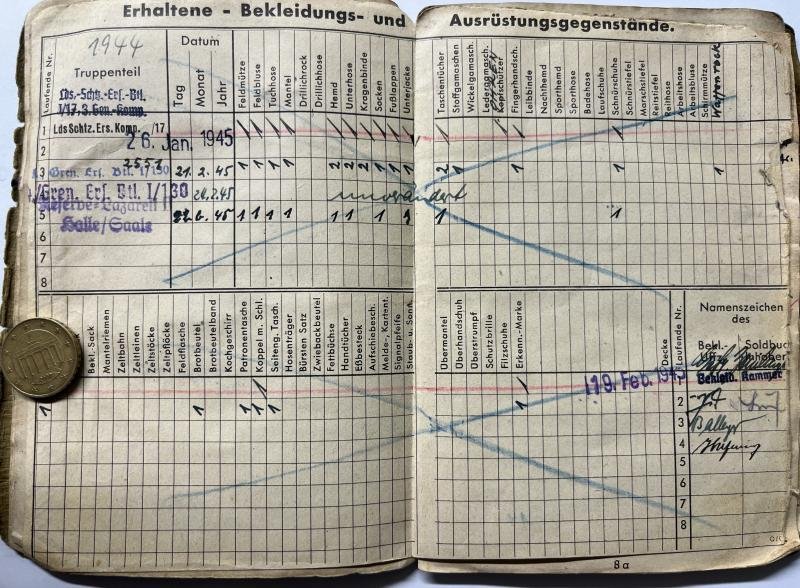 Erhaltene - Bekleidungs- und Ausrüstungsgegenstände.
1944
Truppenteil
Lds.-Schtz.-Ers.-Btl.
I/17, 3. Gen.-Komp.
Laufende Nr.
Datum
Tag
Monat
Jahr
Feldmütze
Feldbluse
Tuchhose
Mantel
Drillichrock
Drillichhose
Hemd
Unterhose
Kragenbinde
Socken
Fußlappen
Unterjacke
Taschentücher
Stoffgamaschen
Wickelgamasch.
Ledergamasch.
Kopfschützer
Fingerhandsch.
Leibbinde
Nachthemd
Sporthemd
Sporthose
Badehose
Laufschuhe
Schnürschuhe
Schnürstiefel
Marschstiefel
Reitstiefel
Reithose
Arbeitshose
Arbeitsbluse
Schirmmütze
Waffenrock
1 Lds Schtz. Ers. Komp. /17
2 26. Jan. 1945
2551
3 Gren. Ers. Btl. I/130 21. 2. 45 1 1 1 1 2 2 2 1 1 1 2 1 1 1 1
4 Gren. Ers. Btl. I/130 24.2.45 unverändert
5 Reserve-Lazarett 6. 45 1 1 1 1 1 1 1 1 1 1
Halle/Saale
7
8
Bekl.-Sack
Mantelriemen
Zeltbahn
Zeltleinen
Zeltstöcke
Zeltpflöcke
Feldflasche
Brotbeutel
Brotbeutelband
Kochgeschirr
Patronentasche
Koppel m. Schl.
Seiteng. Tasch.
Hosenträger
Bürsten Satz
Zwiebackbeutel
Fettbüchse
Handtücher
Eßbesteck
Aufschiebesch.
Melde-, Kartent.
Signalpfeife
Staub- u. Sonn.
Übermantel
Überhandschuh
Überstrumpf
Schutzbrille
Filzschuhe
Erkenn.-Marke
Decke
Laufende Nr.
Namenszeichen
des
Bekl.- Soldbuch
Uffz.
19. Feb. 1945
Bekleid. Kammer
1 1 1 1 1 1
2
3
4
5
6
7
8
8 a